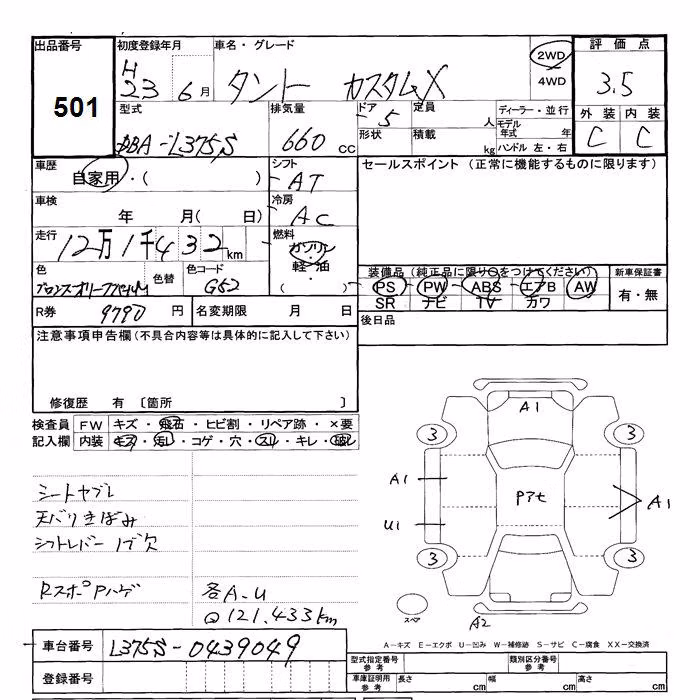 出品番号
501
初度登録年月
H
23 6月
車名・グレード
タント カスタムX
2WD
4WD
評価点
3.5
外装 内装
C C
型式
DBA-L375S
排気量
660 cc
ドア 5
定員 人
形状
積載 kg
ディーラー・並行
モデル年式 年
ハンドル 左・右
車歴
自家用・( )
シフト
AT
セールスポイント (正常に機能するものに限ります)
車検
年 月( 日)
冷房
AC
走行
12万1千432km
燃料
ガソリン
軽・油
( )
色
色替
色コード
G52
装備品 (純正品に限り○をつけてください)
PS PW ABS エアB AW
SR ナビ TV カワ
新車保証書
有・無
R券 9790円
名変期限 月 日
後日品
注意事項申告欄(不具合内容等は具体的に記入して下さい)
修復歴 有 〔箇所 〕
検査員記入欄
FW キズ・飛石・ヒビ割・リペア跡・×要
内装 キズ・汚レ・コゲ・穴・スレ・キレ・破レ
シートヤブレ
天バリきばみ
シフトレバー 1ブ欠
RスポPハゲ
各A.U
Q 121.433km
A1
3 3
A1
Pアセ
A1
U1
3 3
スペア
A2
A-キズ E-エクボ U-凹み W-補修跡 S-サビ C-腐食 XX-交換済
車台番号
L375S-0439049
登録番号
型式指定番号 参考
類別区分番号 参考
車庫証明用 参考
長さ cm
幅 cm
高さ cm